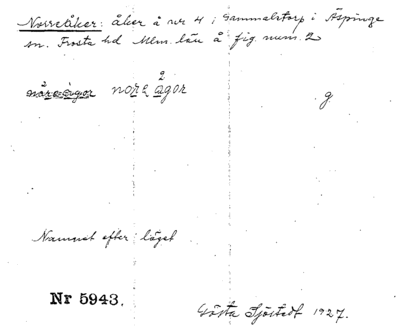 Norreåker: åker å nr 4 i Gammalstorp i Äspinge
sn. Frosta hd Mlm. län å fig. num. 2
nore ågor g
Namnet efter läget
Nr 5943.
Gösta Sjöstedt 1927.